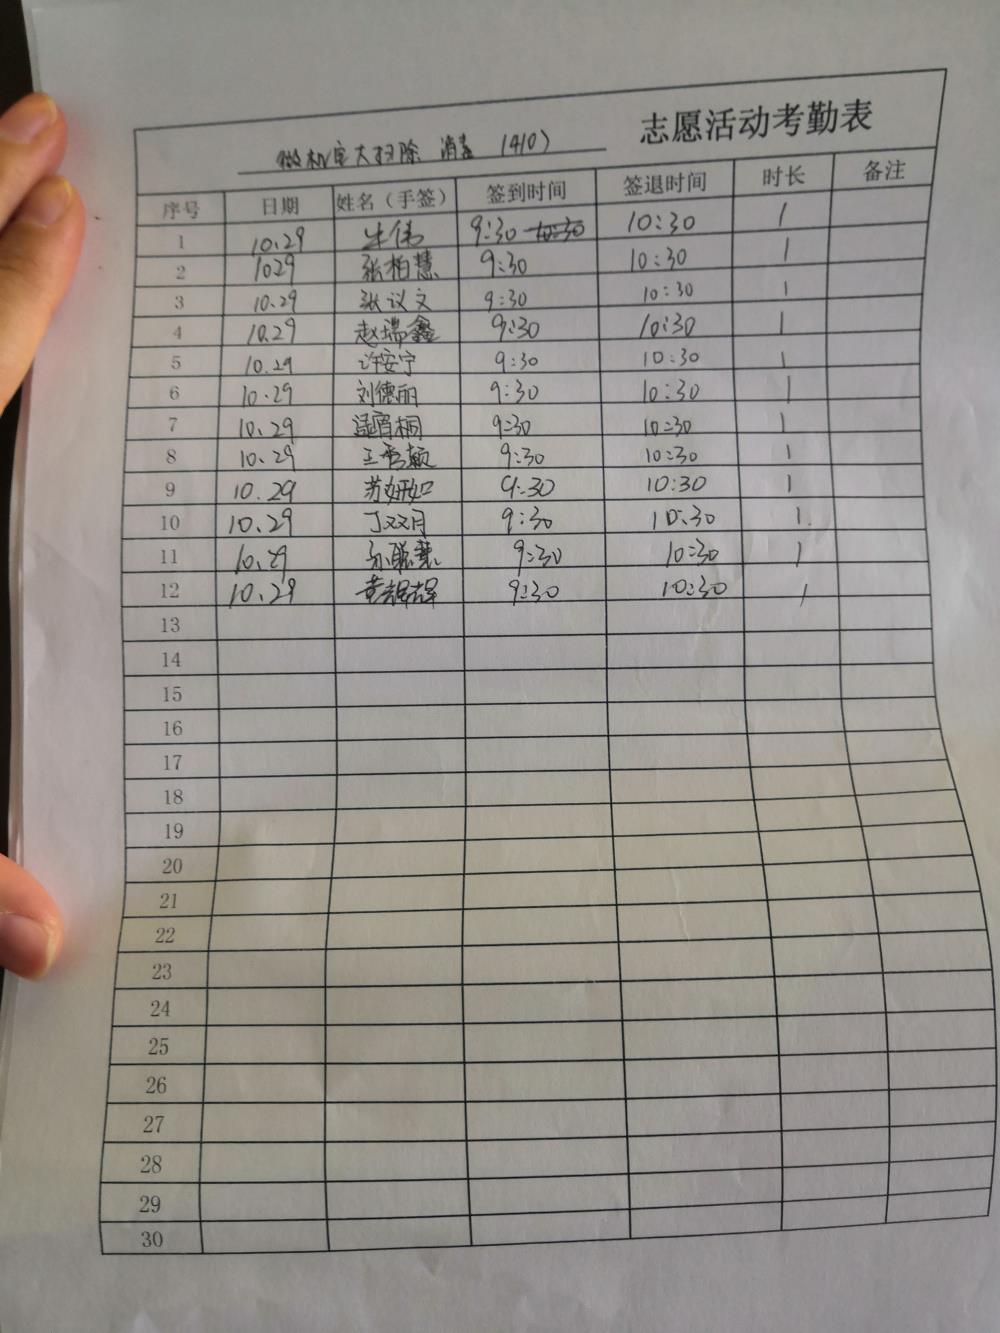 做机房大扫除 消毒 (410) 志愿活动考勤表
序号 日期 姓名（手签） 签到时间 签退时间 时长 备注
1 10.29 牛伟 9:30 10:30 10:30 1
2 1029 张柏慧 9:30 10:30 1
3 10.29 张议文 9:30 10:30 1
4 10.29 赵瑞鑫 9:30 10:30 1
5 10.29 许安宁 9:30 10:30 1
6 10.29 刘德丽 9:30 10:30 1
7 10.29 孟宵桐 9:30 10:30 1
8 10.29 王雪颖 9:30 10:30 1
9 10.29 苏妍如 9:30 10:30 1
10 10.29 丁双月 9:30 10:30 1
11 10.29 孙聪慧 9:30 10:30 1
12 10.29 黄 9:30 10:30 1
13
14
15
16
17
18
19
20
21
22
23
24
25
26
27
28
29
30